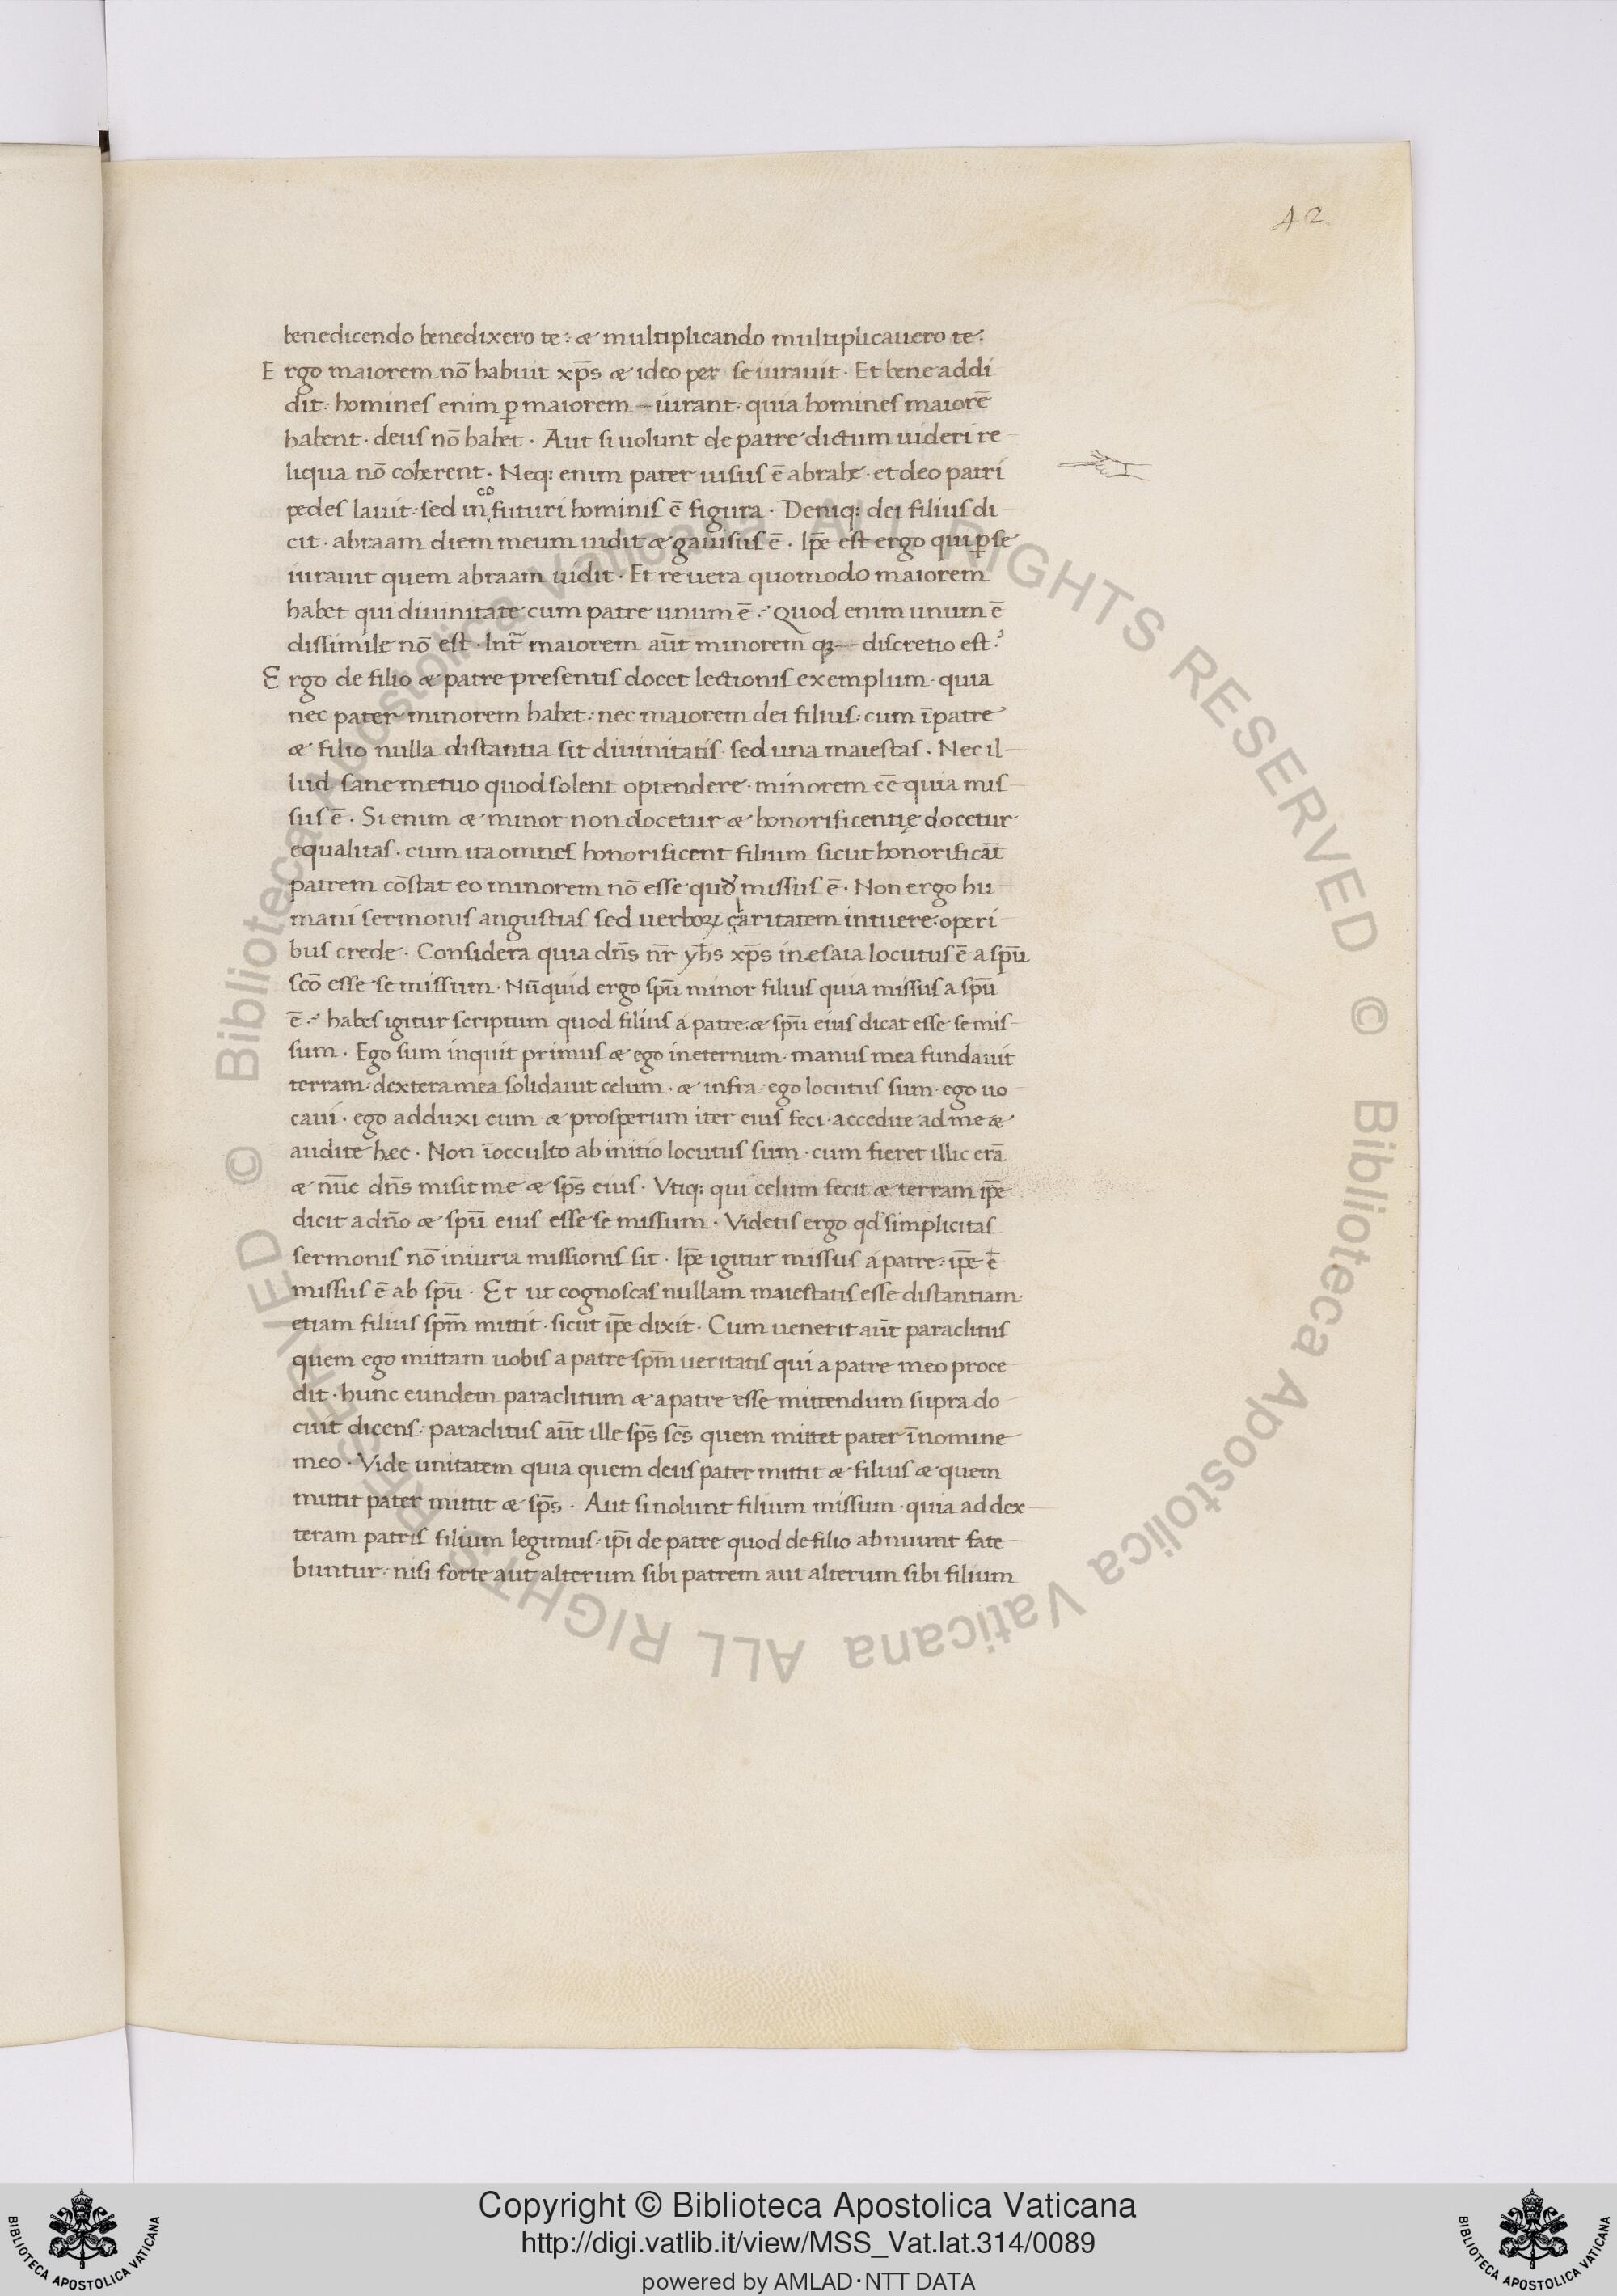 42
benedicendo benedixero te : & multiplicando multiplicauero te :
Ergo maiorem nō habuit xp̄s & ideo per se iurauit · Et bene addi
dit : homines enim ꝑ maiorem — iurant : quia homines maiorē
habent · deus nō habet · Aut si uolunt de patre dictum uideri re
liqua nō coherent · Neq; enim pater uisus ē abrahe · et deo patri
pedes lauit : sed in eo futuri hominis ē figura · Deniq; dei filius di
cit · abraam diem meum uidit & gauisus ē · Ip̄e est ergo qui ꝑ se
iurauit quem abraam uidit · Et re uera quomodo maiorem
habet qui diuinitate cum patre unum ē ? Quod enim unum ē
dissimile nō est · Int̄ maiorem aūt minorem qꝫ — discretio est ?
Ergo de filio & patre presentis docet lectionis exemplum · quia
nec pater minorem habet : nec maiorem dei filius : cum ī patre
& filio nulla distantia sit diuinitatis · sed una maiestas · Nec il
lud sane metuo quod solent optendere · minorem eē quia mis
sus ē · Si enim & minor non docetur & honorificentię docetur
equalitas · cum ita omnes honorificent filium sicut honorificāt
patrem cōstat eo minorem nō esse quod missus ē · Non ergo hu
mani sermonis angustias sed uerboꝝ claritatem intuere : operi
bus crede · Considera quia dn̄s nr̄ yh̄s xp̄s in esaia locutus ē a sp̄u
scō esse se missum · Nūquid ergo sp̄u minor filius quia missus a sp̄u
ē ? habes igitur scriptum quod filius a patre & sp̄u eius dicat esse se mis
sum · Ego sum inquit primus & ego in eternum · manus mea fundauit
terram : dextera mea solidauit celum · & infra · ego locutus sum · ego uo
caui · ego adduxi eum & prosperum iter eius feci · accedite ad me &
audite hec · Non ī occulto ab initio locutus sum · cum fieret illic erā
& nūc dn̄s misit me & sp̄s eius · Vtiq; qui celum fecit & terram ip̄e
dicit a dn̄o & sp̄u eius esse se missum · Videtis ergo qd simplicitas
sermonis nō iniuria missionis sit · Ip̄e igitur missus a patre : ip̄e ē
missus ē ab sp̄u · Et ut cognoscas nullam maiestatis esse distantiam·
etiam filius sp̄m mittit · sicut ip̄e dixit · Cum uenerit aūt paraclitus
quem ego mittam uobis a patre sp̄m ueritatis qui a patre meo proce
dit · hunc eundem paraclitum & a patre esse mittendum supra do
cuit dicens : paraclitus aūt ille sp̄s sc̄s quem mittet pater ī nomine
meo · Vide unitatem quia quem deus pater mittit & filius & quem
mittit pater mittit & sp̄s · Aut si nolunt filium missum · quia ad dex
teram patris filium legimus : ip̄i de patre quod de filio abnuunt fate
buntur : nisi forte aut alterum sibi patrem aut alterum sibi filium
© Biblioteca Apostolica Vaticana ALL RIGHTS RESERVED
© Biblioteca Apostolica Vaticana ALL RIGHTS RESERVED
Copyright © Biblioteca Apostolica Vaticana
http://digi.vatlib.it/view/MSS_Vat.lat.314/0089
powered by AMLAD·NTT DATA
BIBLIOTECA APOSTOLICA VATICANA
BIBLIOTECA APOSTOLICA VATICANA